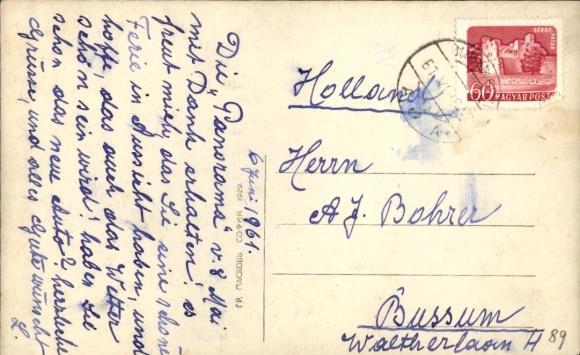 6 Juni 1961.
Die "Panorama" v. 8 Mai
mit Dank erhalten! es
freut mich, das Sie eine schöne
Ferie in Aussicht haben, und
hoffe, das auch das Wetter
schön sein wird! haben Sie
schon das neue Auto? herzliche
Grüsse, und alles Gute wünscht
L.
SÁROS-PATAK
60 MAGYAR POSTA
Holland
Herrn
A. J. Bohrer
Bussum
Waltherlaan
89